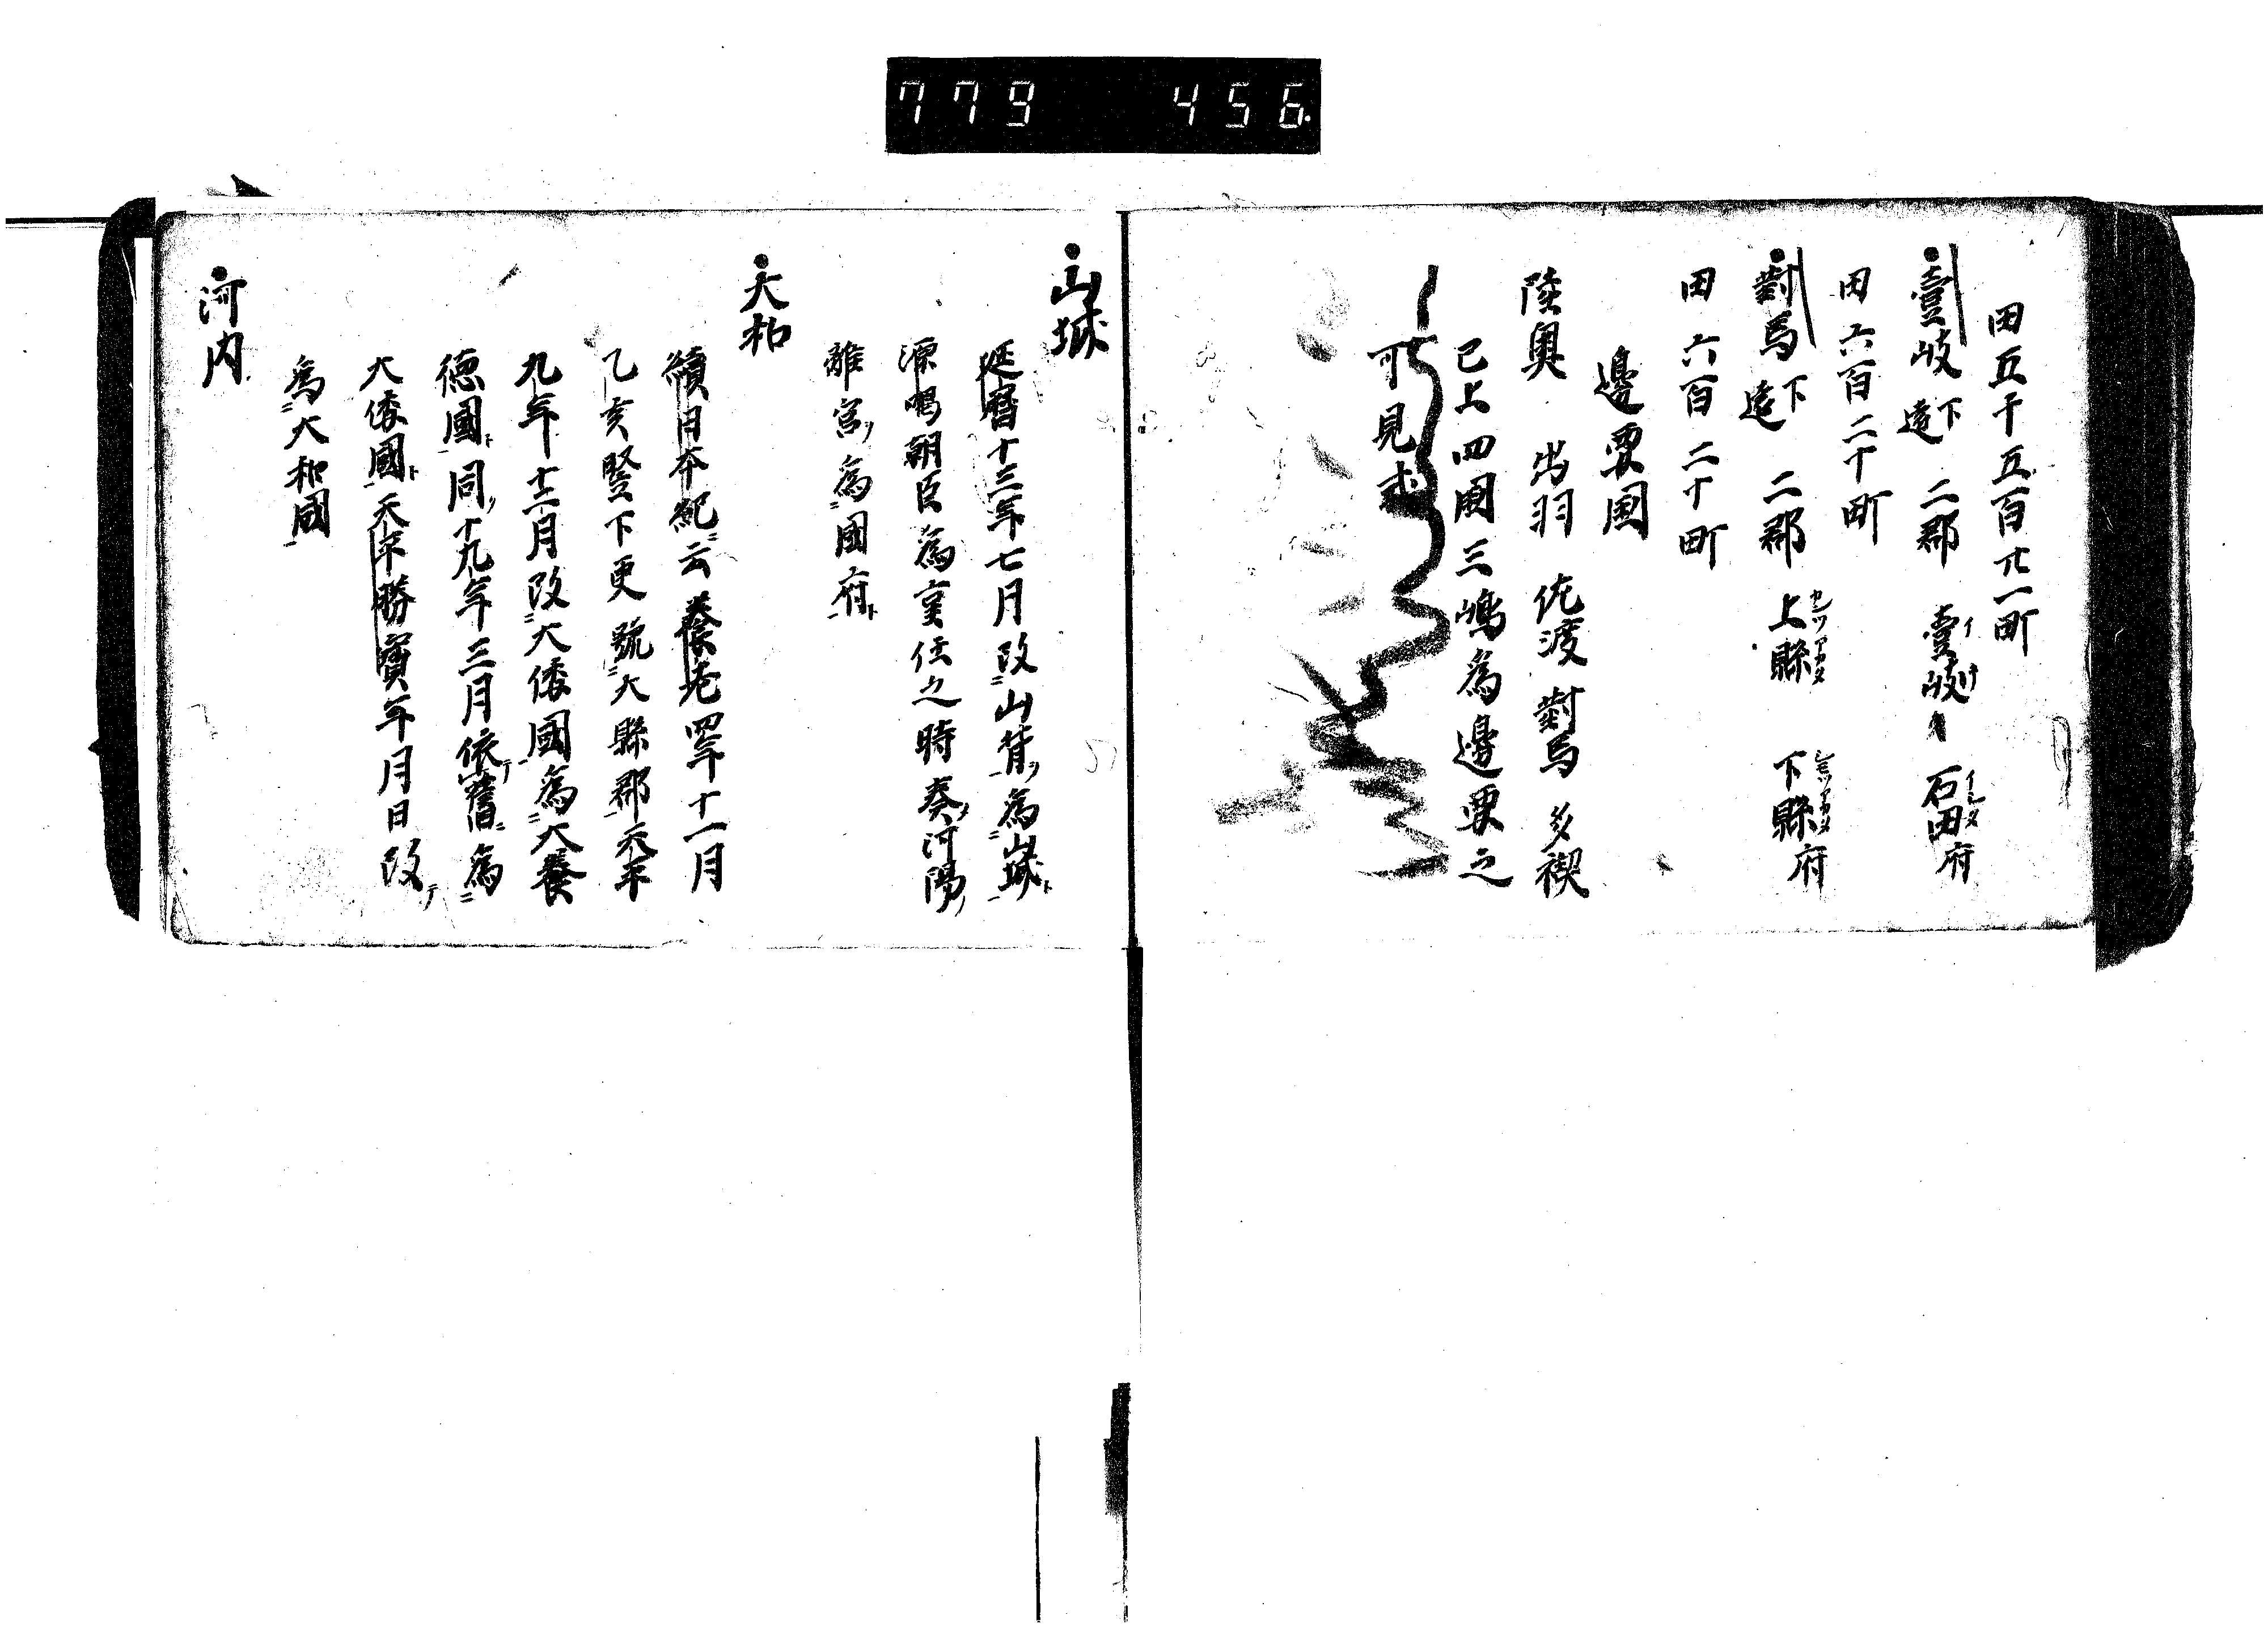 779 456
田五千五百廿一町
壹岐 下遠 二郡 壹岐 石田府
田六百二十町
對馬 下遠 二郡 上縣 下縣府
田六百二十町
邊要国
陸奥 出羽 佐渡 對馬 多禊
已上四國三嶋為邊要之
可見式
山城
延暦十三年七月改山背為山城
源唱朝臣為重任之時奏河陽
離宮為國府
大和
續日本紀云養老四年十一月
乙亥竪下更號大縣郡天平
九年十二月改大倭國為大養
德國同十九年三月依舊為
大倭國天平勝寳年月日改
為大和國
河内